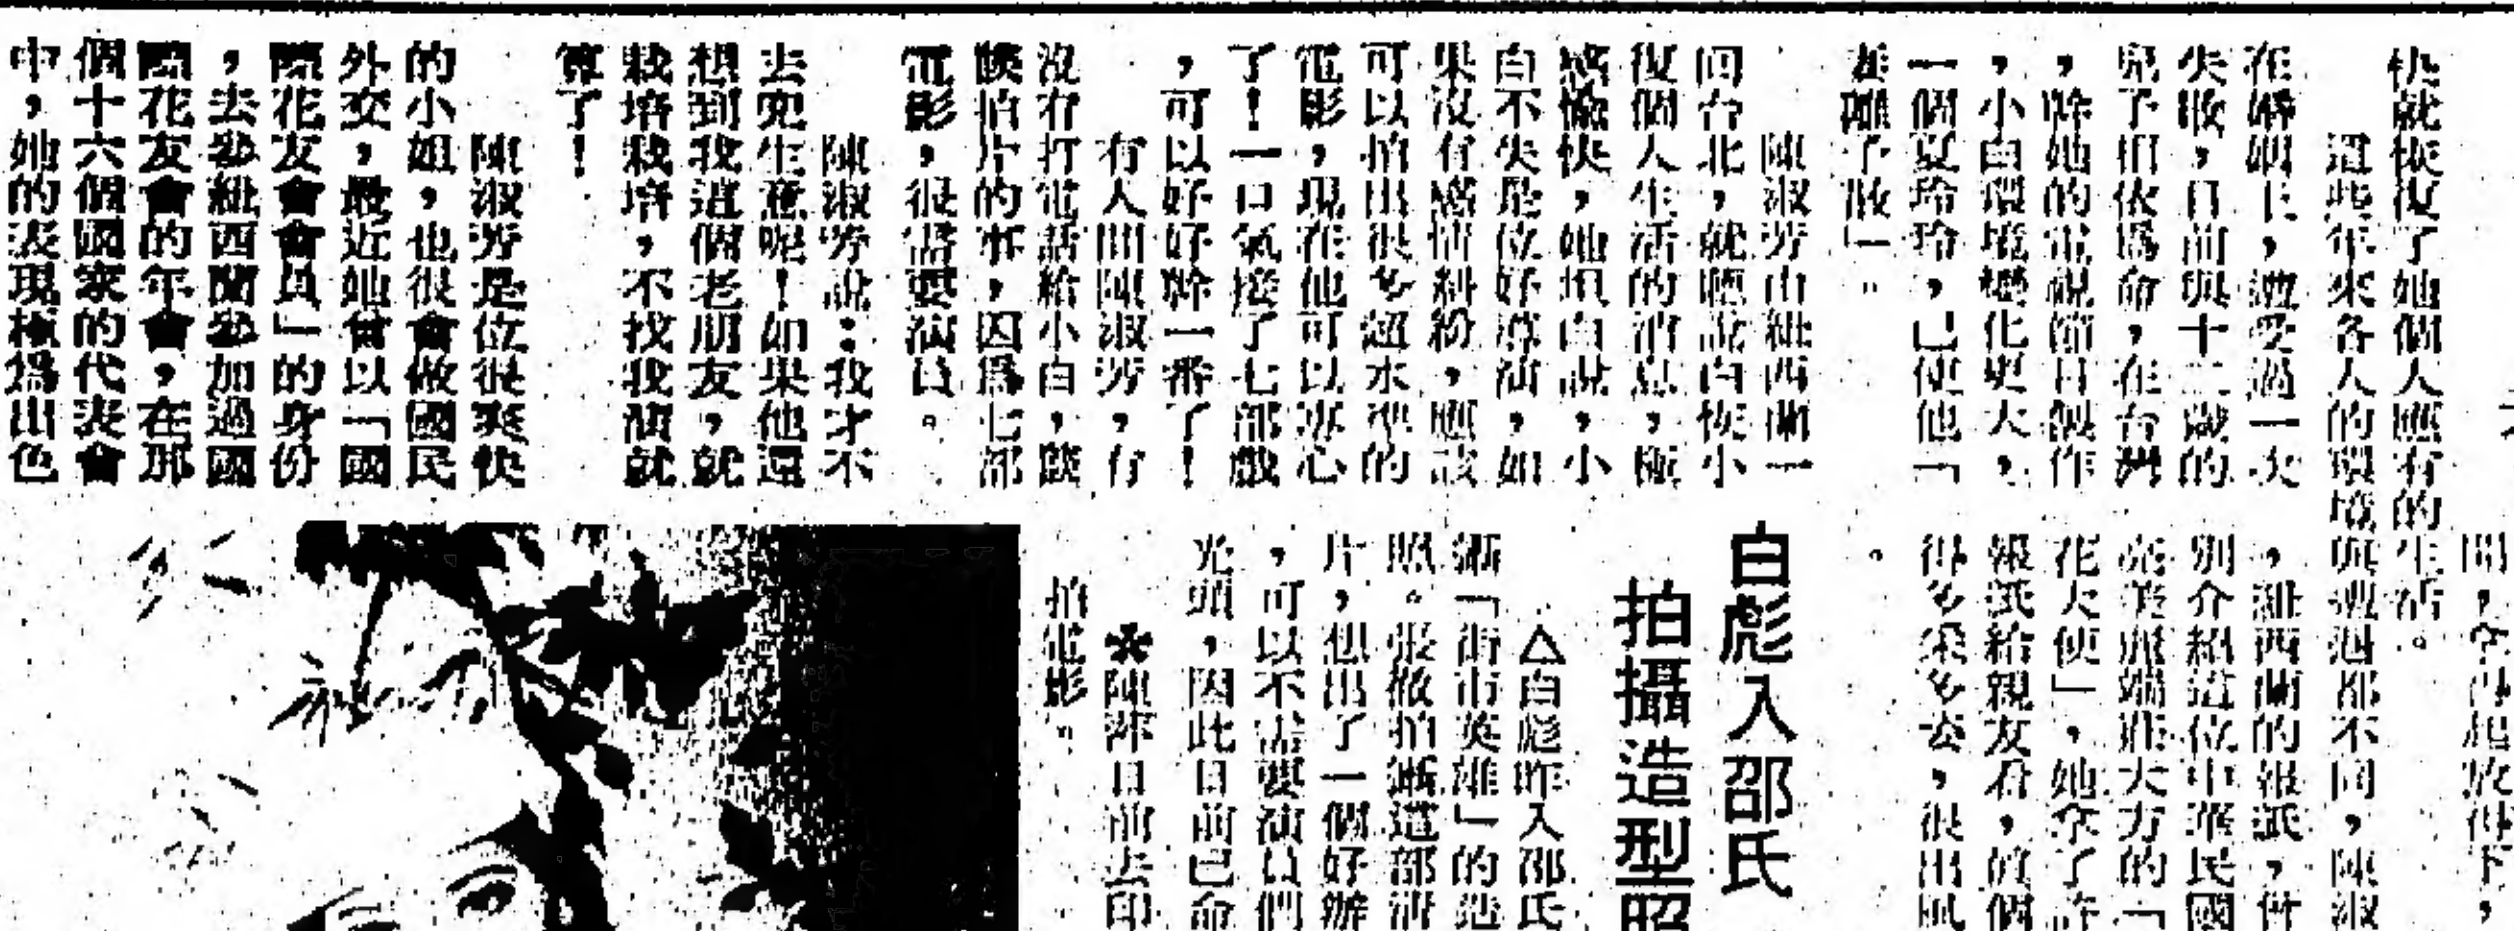 快就恢復了她個人應有的生活。
這些年來各人的環境與遭遇都不同，陳淑
在婚姻上，遭受過一次
失敗，目前與十二歲的
兒子相依為命，在台灣
，除她的電視節目製作
，小白環境變化更大，
一個夏玲玲，已使他「
妻離子散」。
陳淑芳由紐西蘭一
回台北，就聽說白恢小
復個人生活的消息，極
感愉快，她坦白說，小
白不失是位好導演，如
果沒有感情糾紛，應該
可以拍出很多超水準的
電影，現在他可以專心
了！一口氣接了七部戲
，可以好好幹一番了！
有人問陳淑芳，有
沒有打電話給小白，談
談拍片的事，因為七部
電影，很需要演員。
陳淑芳說：我才不
去兜生意呢！如果他還
想到我這個老朋友，就
栽培栽培，不找我演就
算了！
陳淑芳是位很爽快
的小姐，也很會做國民
外交，最近她曾以「國
際花友會會員」的身份
，去參紐西蘭參加過國
際花友會的年會，在那
個十六個國家的代表會
中，她的表現極為出色
間，今再起放得下，
，紐西蘭的報紙，曾
別介紹這位中華民國
亮美麗端莊大方的「
花大使」，她拿了許
報紙給親友看，真個
得多采多去，很出風
。
白彪入邵氏
拍攝造型照
△白彪昨入邵氏
攝「街市英雄」的造
照。張徹拍攝這部清
片，想出了一個好辦
，可以不需要演員們
光頭，因此日前已命
✽陳萍日前去印
拍電影。